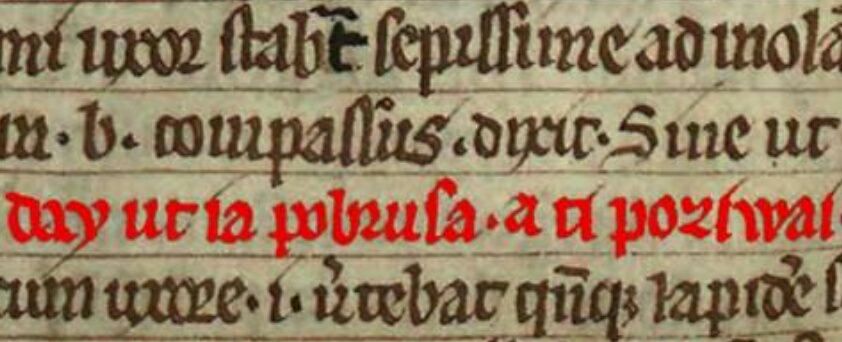 mi uxor stab̄t sepissime ad molā
m . b . compassus . dixit . Sine ut
day ut ia pobrusa . a ti poziwai
cum uxore . i . v̓tebat lapidē